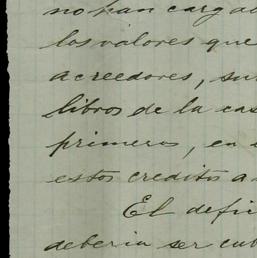 no han cargad
los valores que
acreedores, su
libros de la cas
primeros, en
estos creditos a
El defi
deberia ser cub